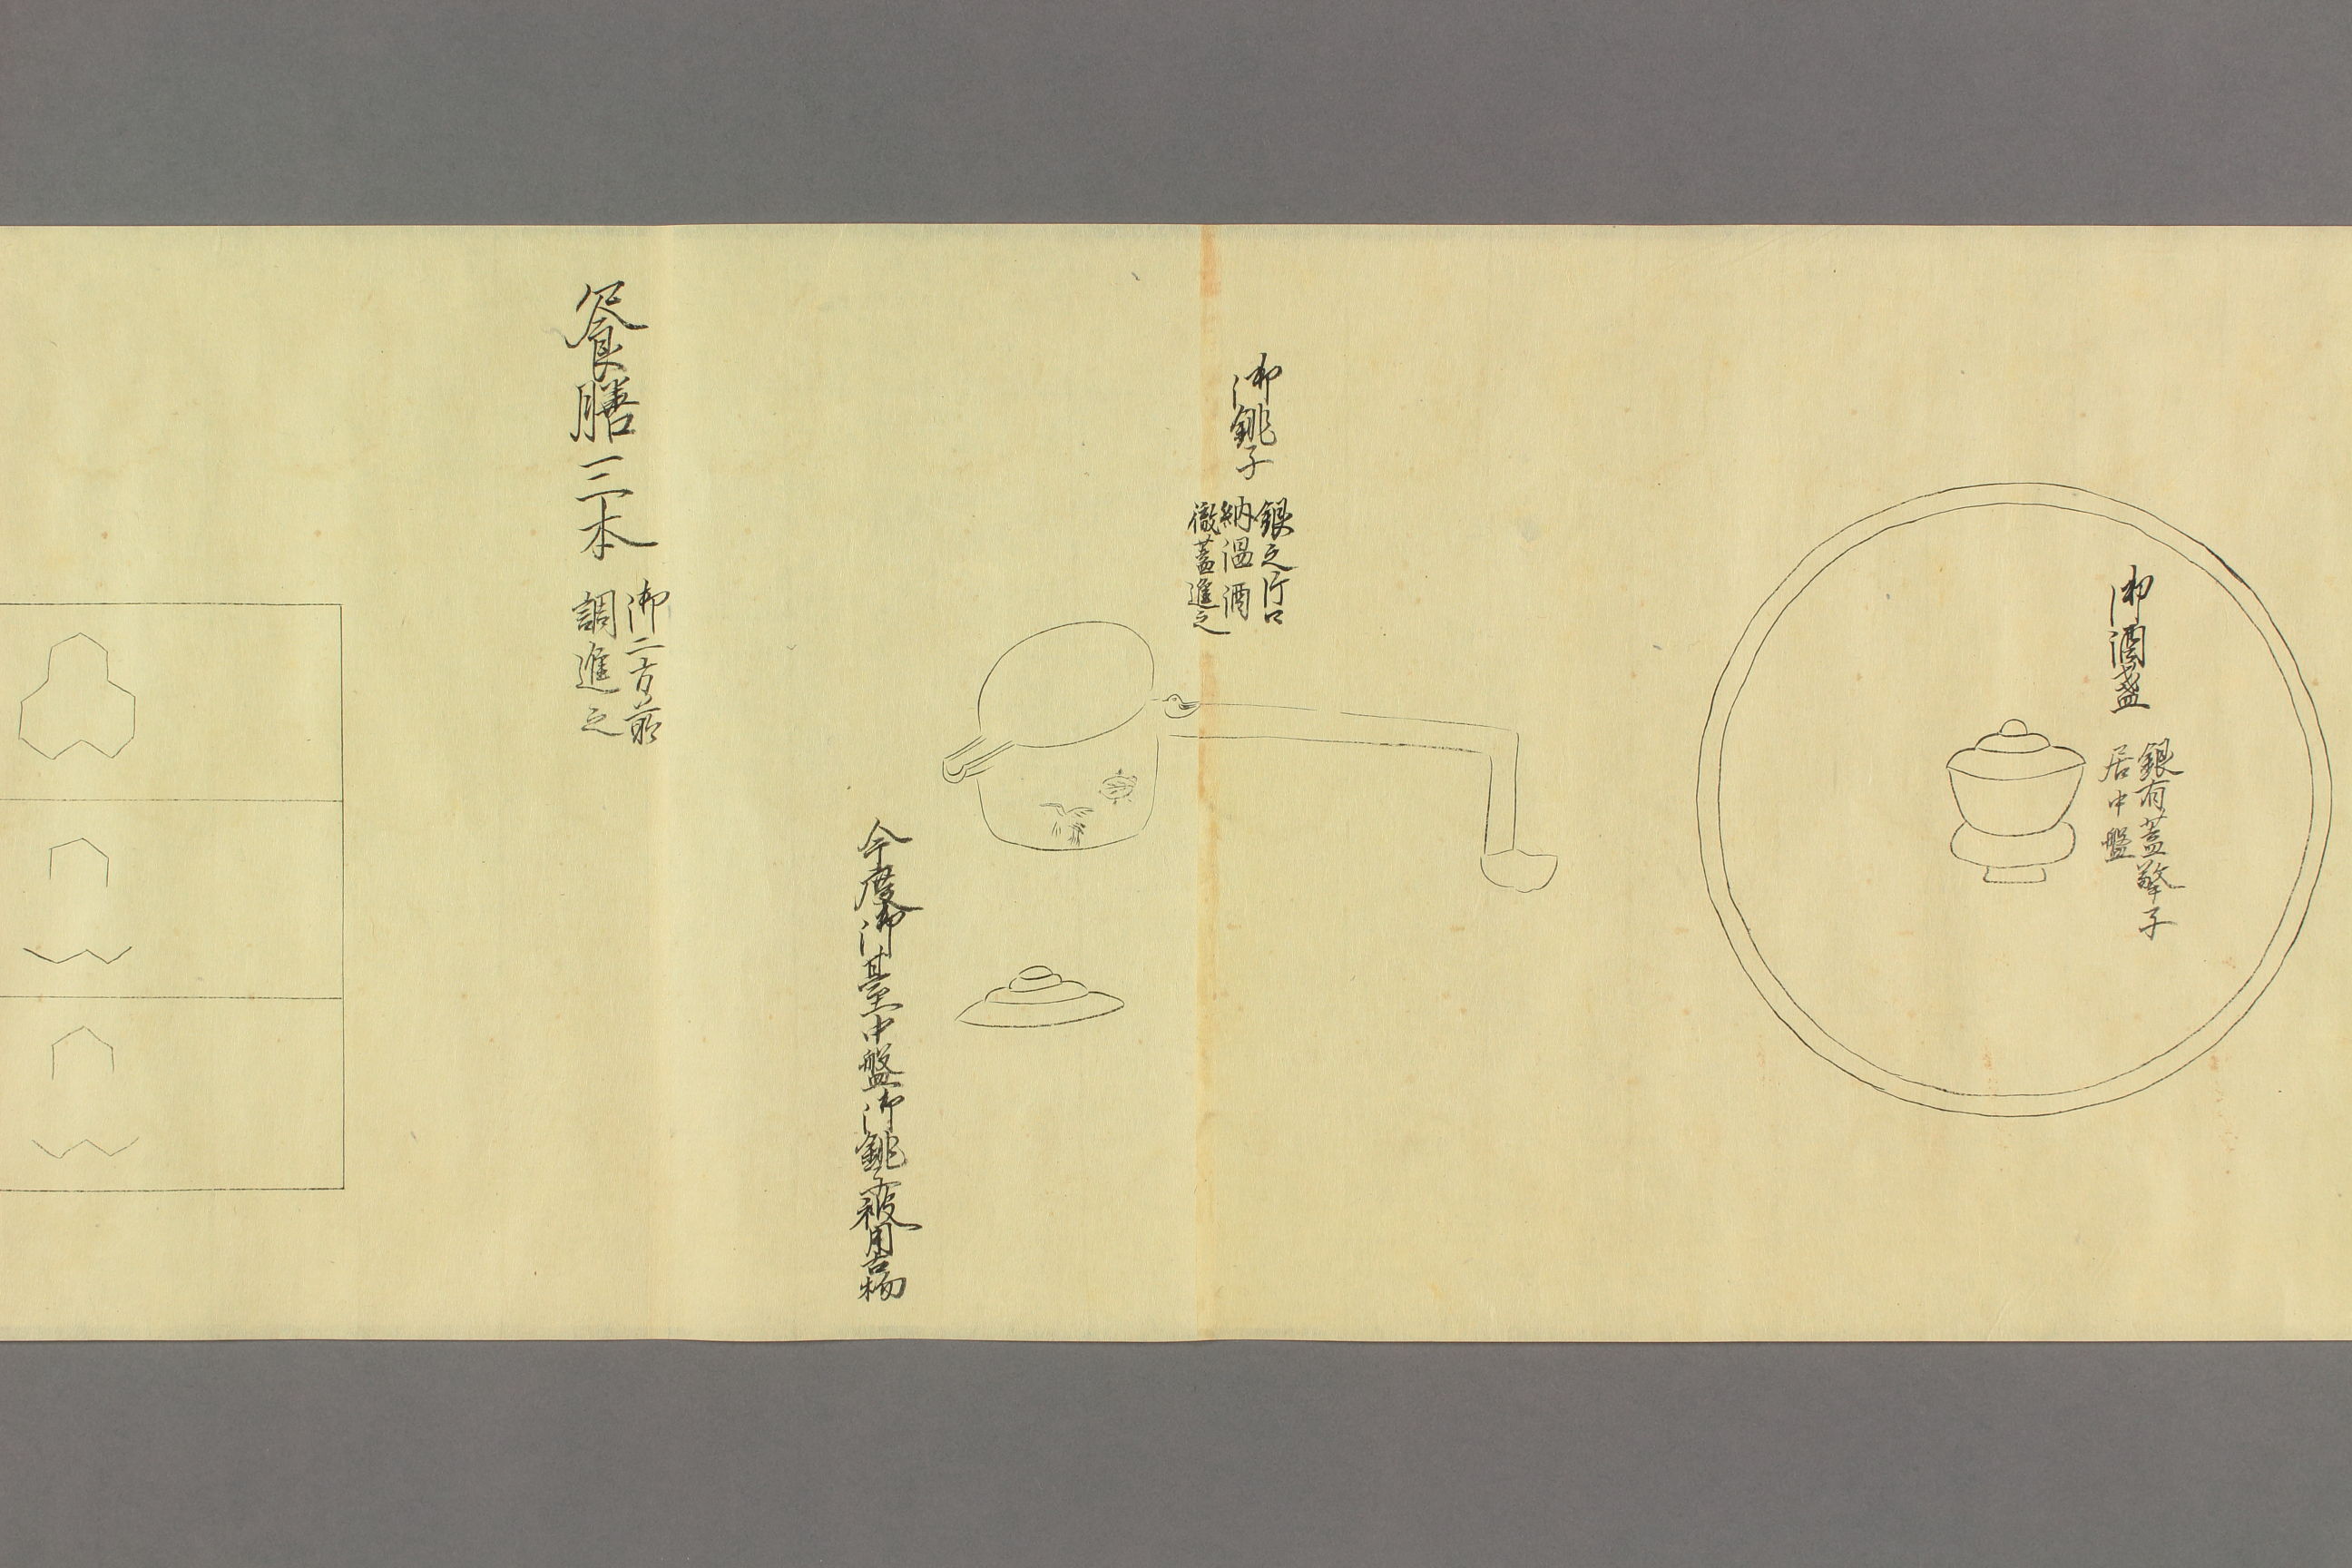 御酒盞
銀有蓋擎子
居中盤
御銚子
銀之片口
納温酒
徹蓋進之
今度御臺中盤御銚子被用古物
餐膳三本
御二方前
調進之